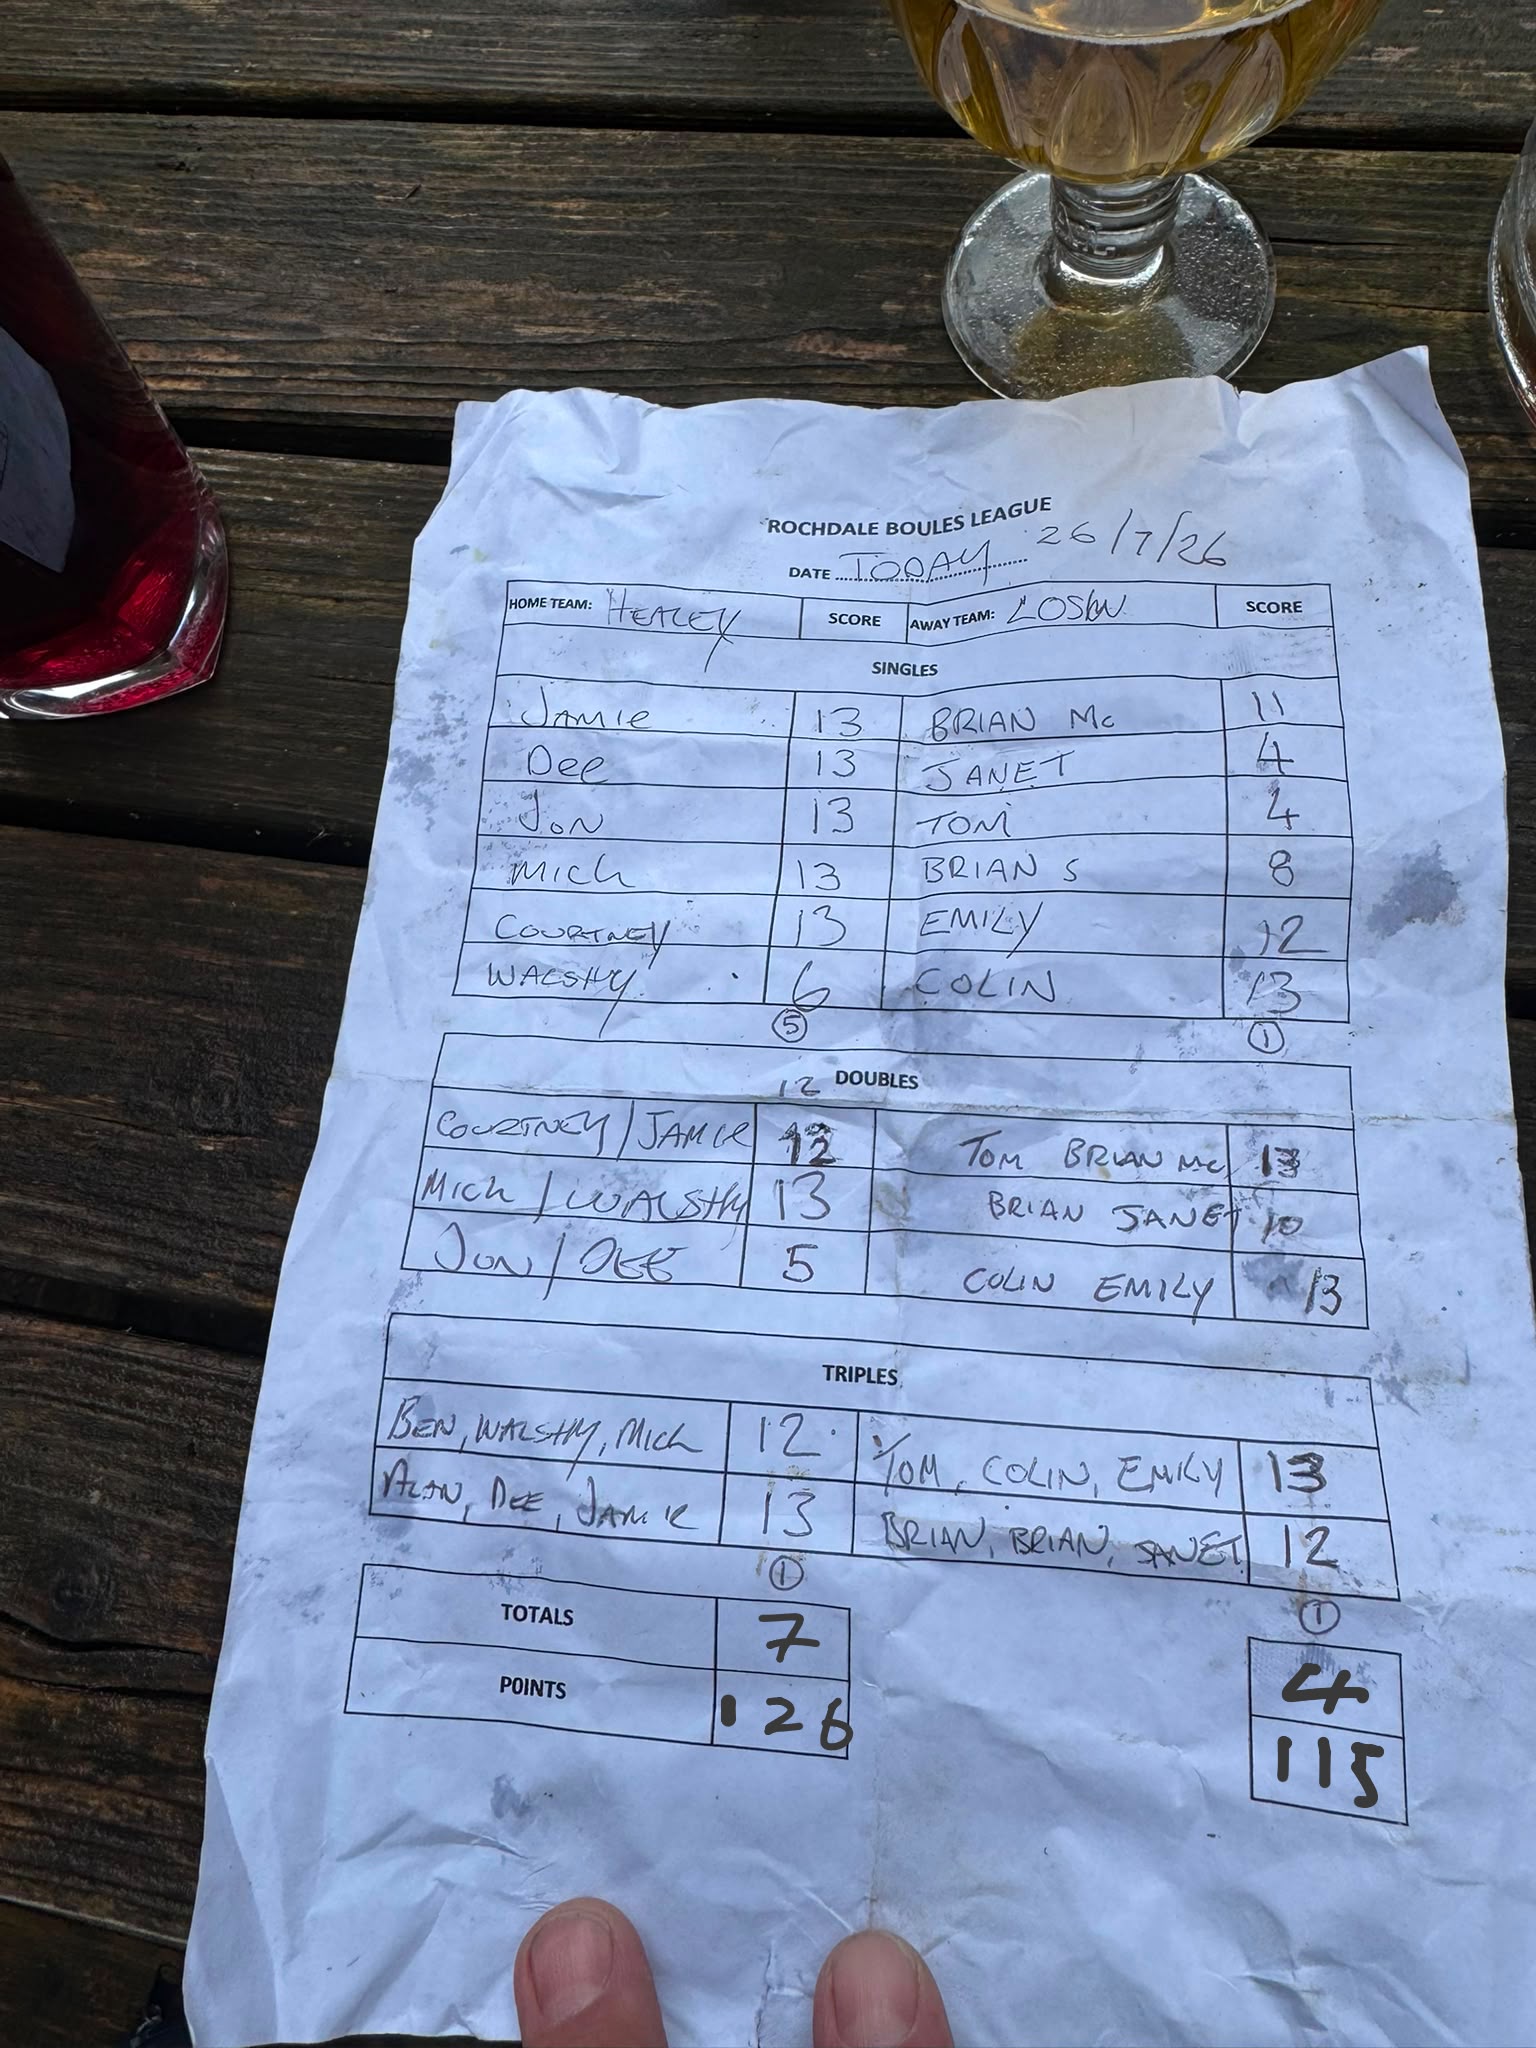 ROCHDALE BOULES LEAGUE
DATE TODAY 26/7/26
HOME TEAM: HEALEY SCORE AWAY TEAM: LOSIN SCORE
SINGLES
JAMIE 13 BRIAN Mc 11
Dee 13 JANET 4
JON 13 TOM 4
MICH 13 BRIAN S 8
COURTNEY 13 EMILY 12
WALSHY 6 COLIN 13
5 1
12 DOUBLES
COURTNEY/JAMIE 12 TOM BRIAN MC 13
MICH/WALSHY 13 BRIAN JANET 10
JON/DEE 5 COLIN EMILY 13
TRIPLES
BEN, WALSHY, MICH 12 TOM, COLIN, EMILY 13
ALAN, DEE, JAMIE 13 BRIAN, BRIAN, JANET 12
1 1
TOTALS 7 4
POINTS 126 115